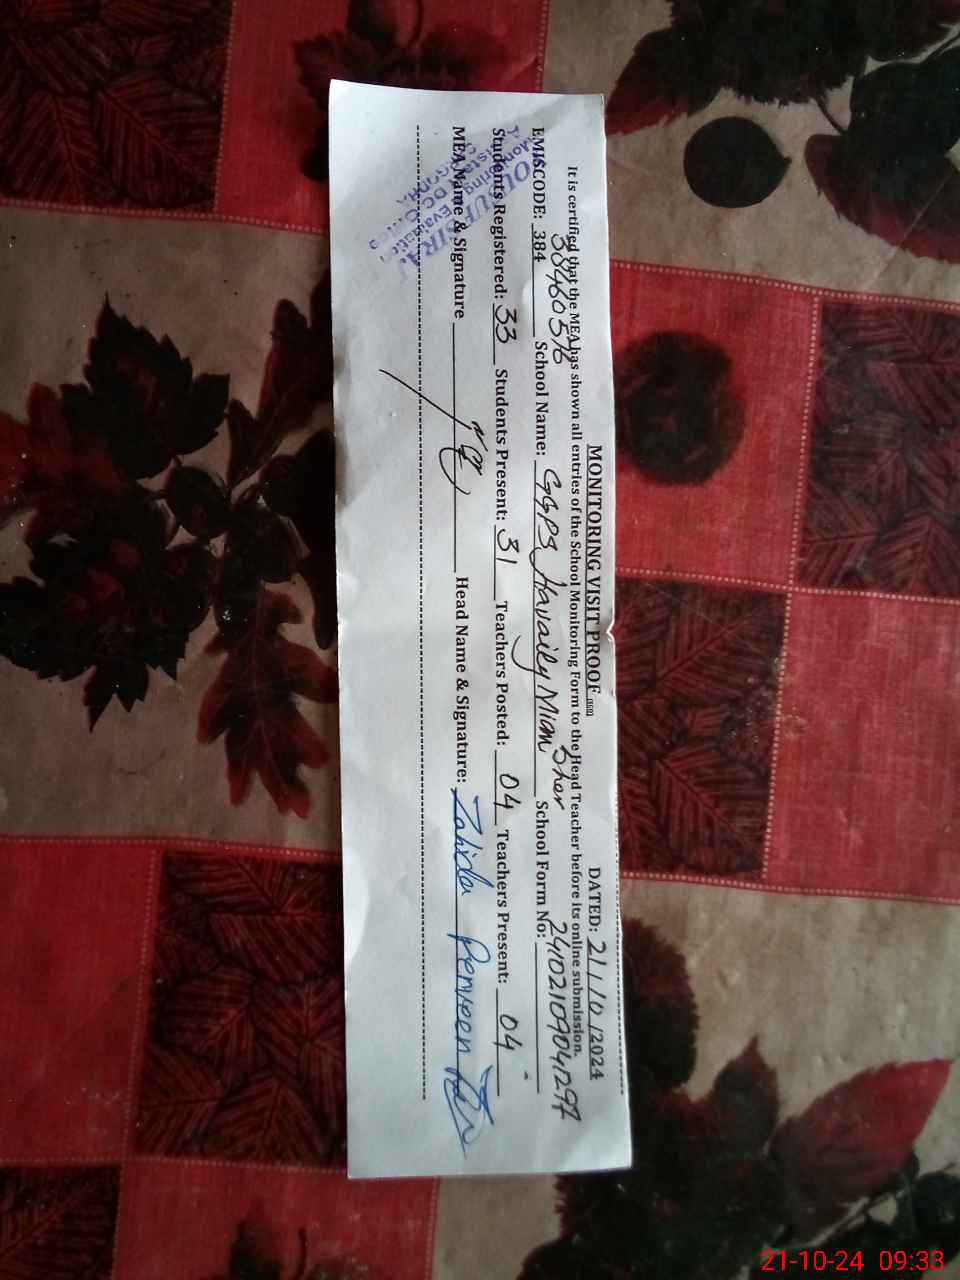 MONITORING VISIT PROOF
DATED: 21/10/2024
It is certified that the MEA has shown all entries of the School Monitoring Form to the Head Teacher before its online submission.
EMISCODE: 384 38460576 School Name: GGPS Havaily Mian Sher School Form No: 24102109041297
Students Registered: 33 Students Present: 31 Teachers Posted: 04 Teachers Present: 04
MEA Name & Signature Head Name & Signature: Zahida Perveen
Monitoring Evaluation
DC Office
21-10-24 09:33